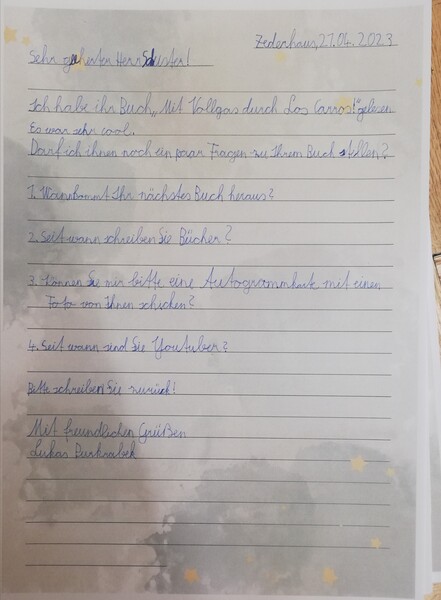 Zederhaus, 27.04.2023
Sehr geehrter Herr Schuster!
Ich habe ihr Buch „Mit Vollgas durch Los Carros!" gelesen
Es war sehr cool.
Darf ich ihnen noch ein paar Fragen zu Ihrem Buch stellen?
1. Wann kommt Ihr nächstes Buch heraus?
2. Seit wann schreiben Sie Bücher?
3. Können Sie mir bitte eine Autogrammkarte mit einen
Foto von Ihnen schicken?
4. Seit wann sind Sie Youtuber?
Bitte schreiben Sie zurück!
Mit freundlichen Grüßen
Lukas